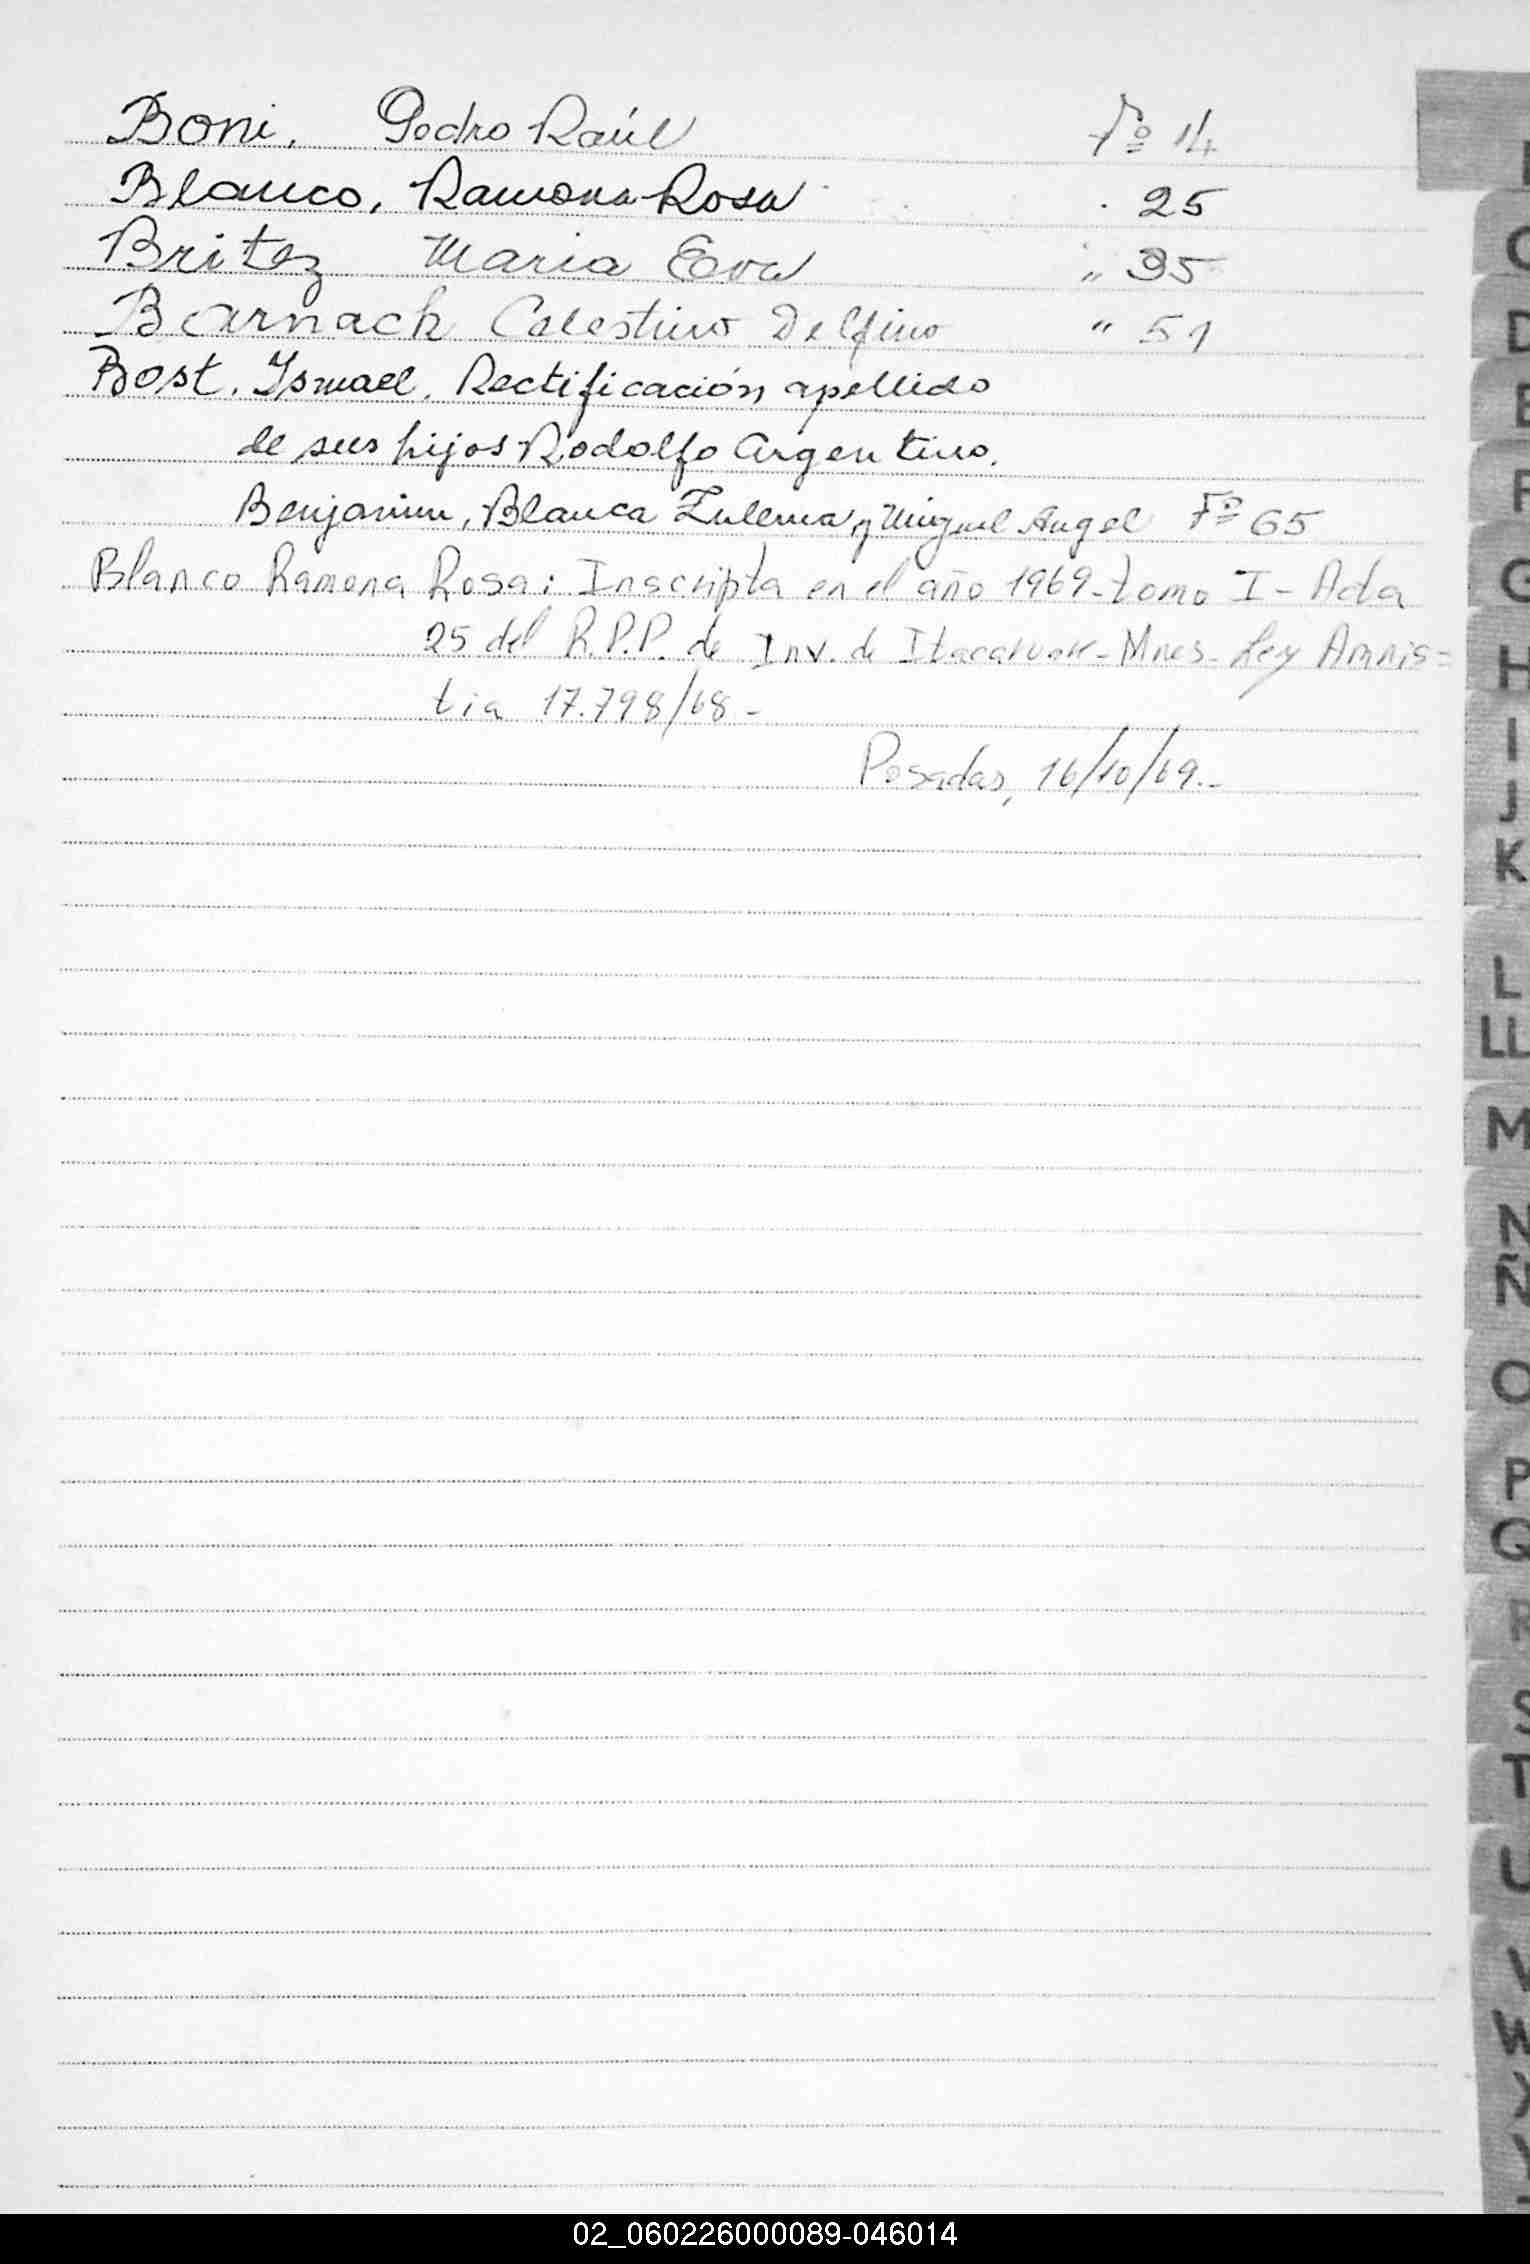 Boni, Pedro Raúl Fº 14
Blanco, Ramona Rosa . 25
Britez Maria Eva " 35
Barnach Celestino Delfino " 51
Bost, Ismael. Rectificación apellido
de sus hijos Rodolfo Argentino,
Benjamin, Blanca Zulema, y Miguel Angel Fº 65
Blanco Ramona Rosa: Inscripta en el año 1969-tomo I- Acta
25 del R.P.P. de Inv. de Itacaruare-Mnes- Ley Amnis=
tia 17.798/68-
Posadas, 16/10/69.-
C
D
E
F
G
H
I
J
K
L
LL
M
N
Ñ
O
P
Q
R
S
T
U
V
W
X
Y
02_060226000089-046014